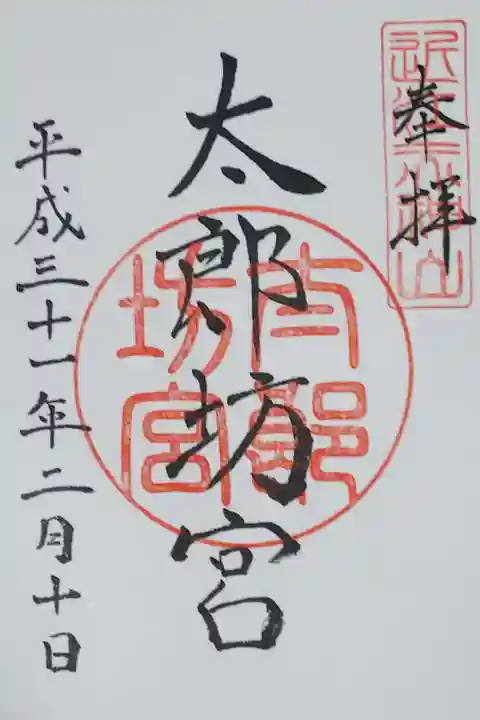 奉拝
太郎坊宮
平成三十一年二月十日
太郎坊宮